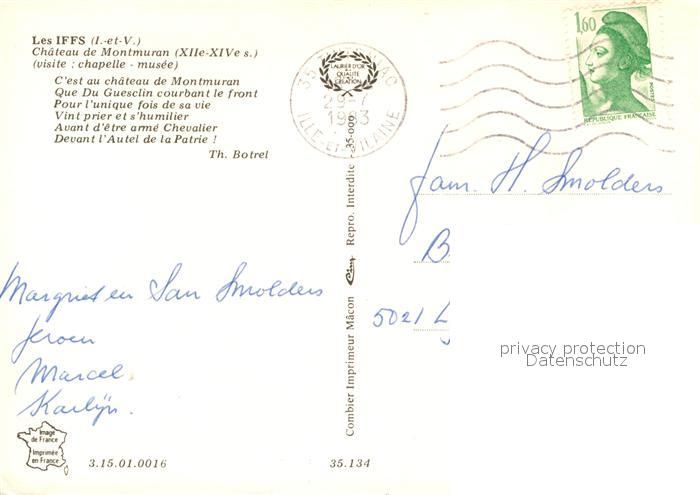 Les IFFS (I.-et-V.)
Château de Montmuran (XIIe-XIVe s.)
(visite : chapelle - musée)
C'est au château de Montmuran
Que Du Guesclin courbant le front
Pour l'unique fois de sa vie
Vint prier et s'humilier
Avant d'être armé Chevalier
Devant l'Autel de la Patrie !
Th. Botrel
Margriet en San Smolders
Jeroen
Marcel
Karlijn.
Image
de France
Imprimée
en France
3.15.01.0016
35.134
Combier Imprimeur Mâcon
Repro. Interdite
35-000
LAURIER D'OR
DE LA
QUALITÉ
CRÉATION
35
29-7
1983
ILLE-ET-VILAINE
1,60
POSTES
REPUBLIQUE FRANÇAISE
Fam. H. Smolders
B
5021 L
privacy protection
Datenschutz